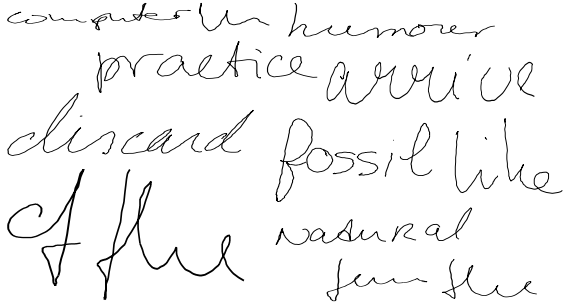 computer in humour
practice arrive
discard fossil like
of the natural
the